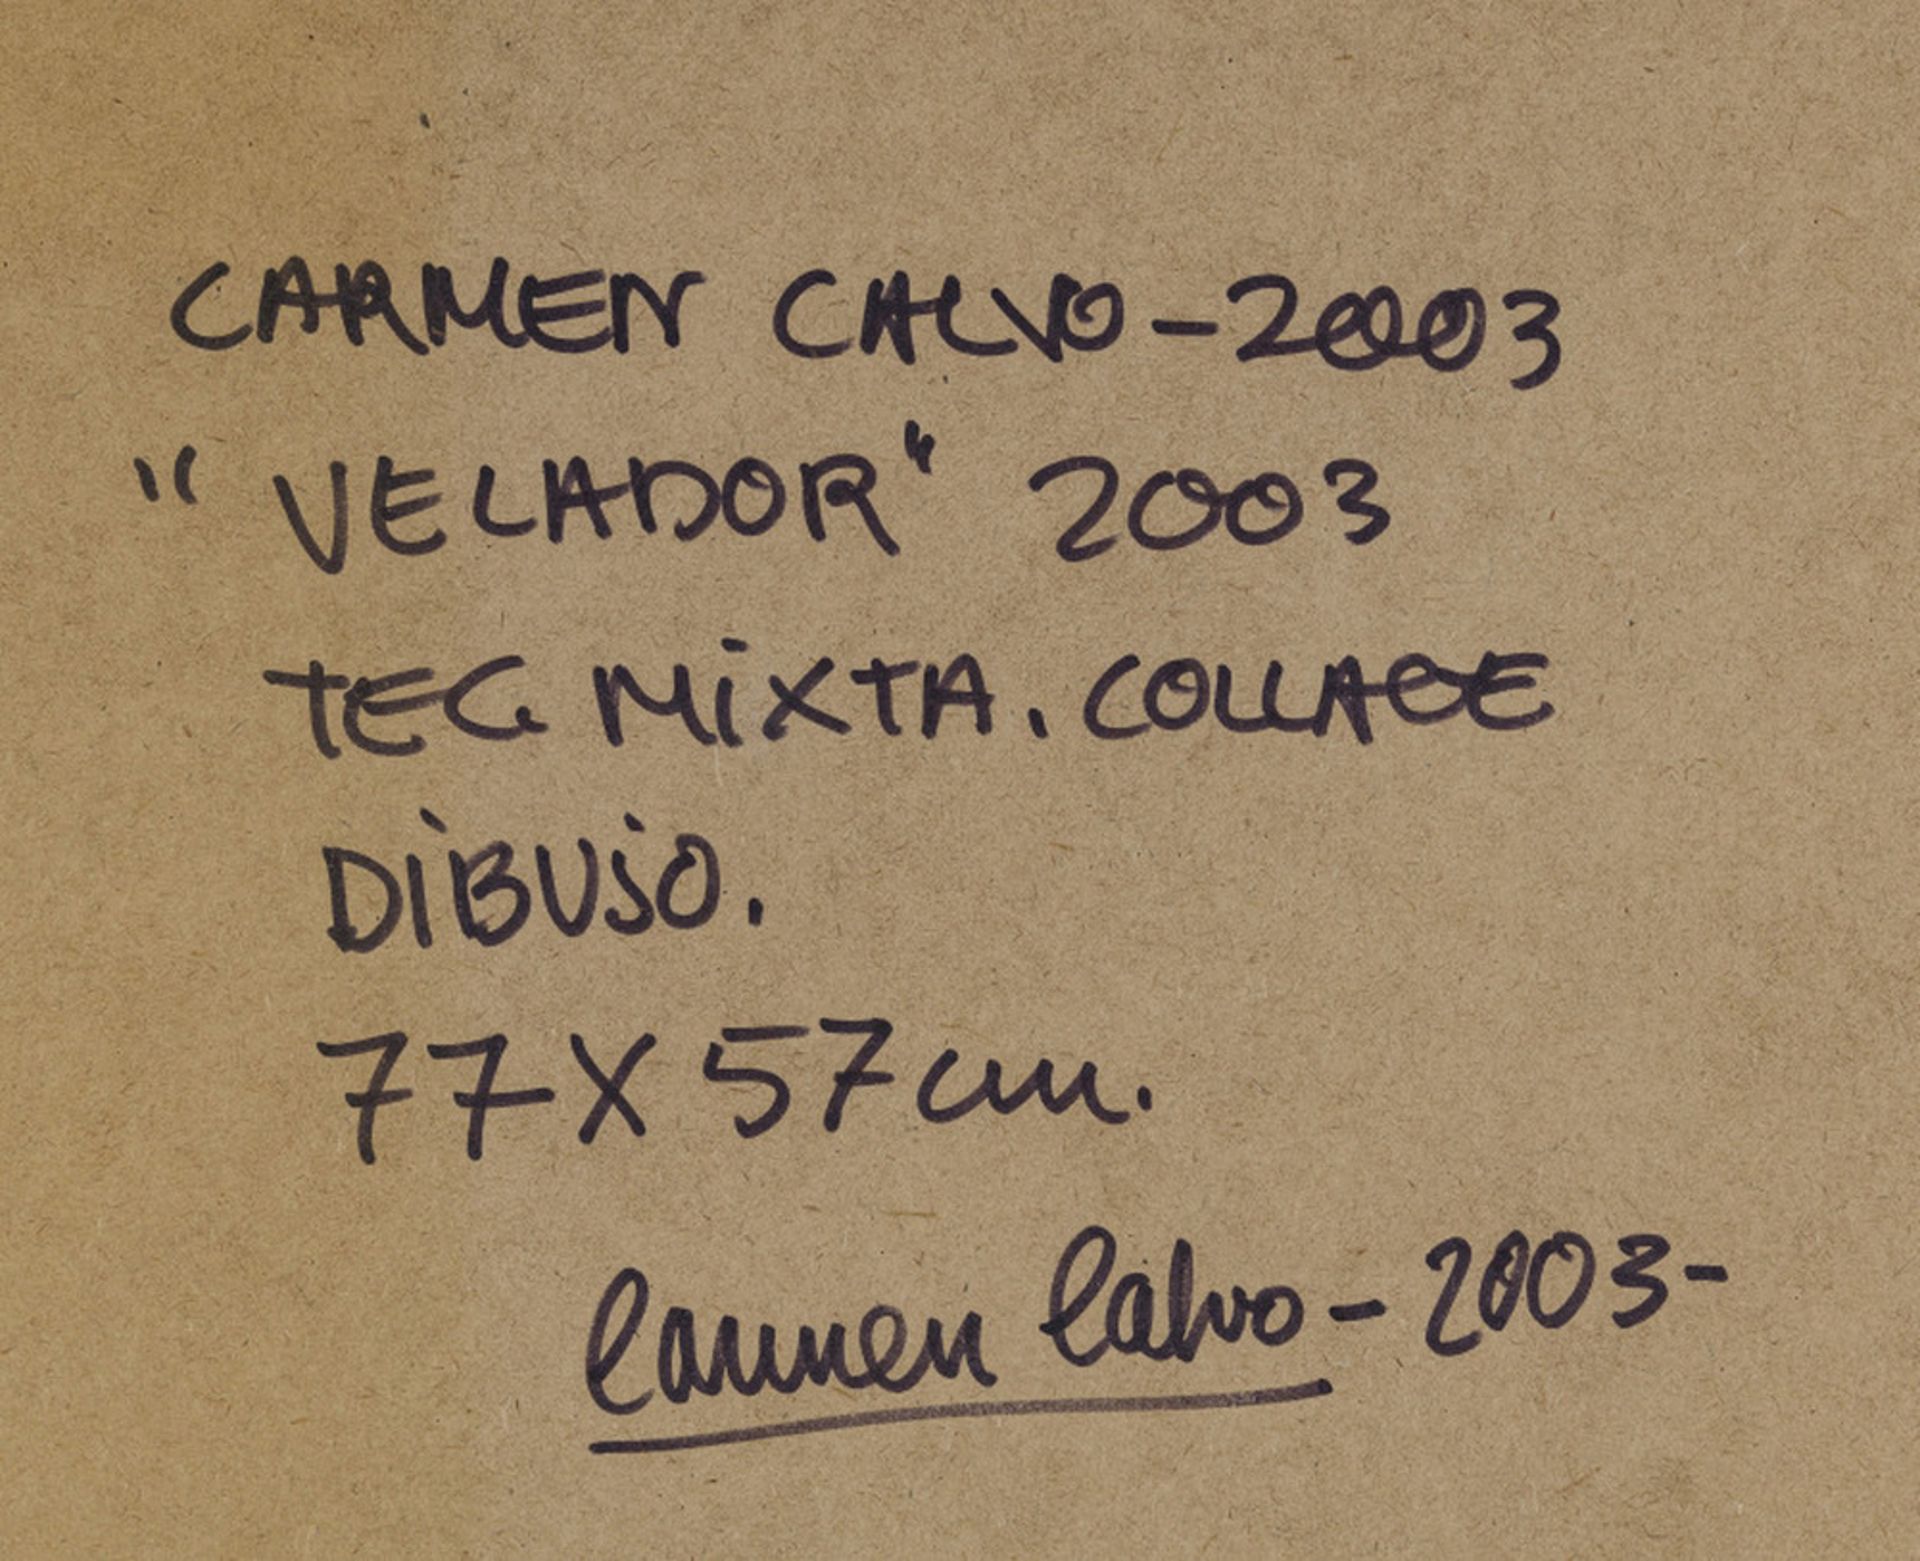 CARMEN CALVO - 2003
"VELADOR" 2003
TEC. MIXTA. COLLAGE
DIBUJO.
77 X 57 cm.
Carmen Calvo - 2003 -